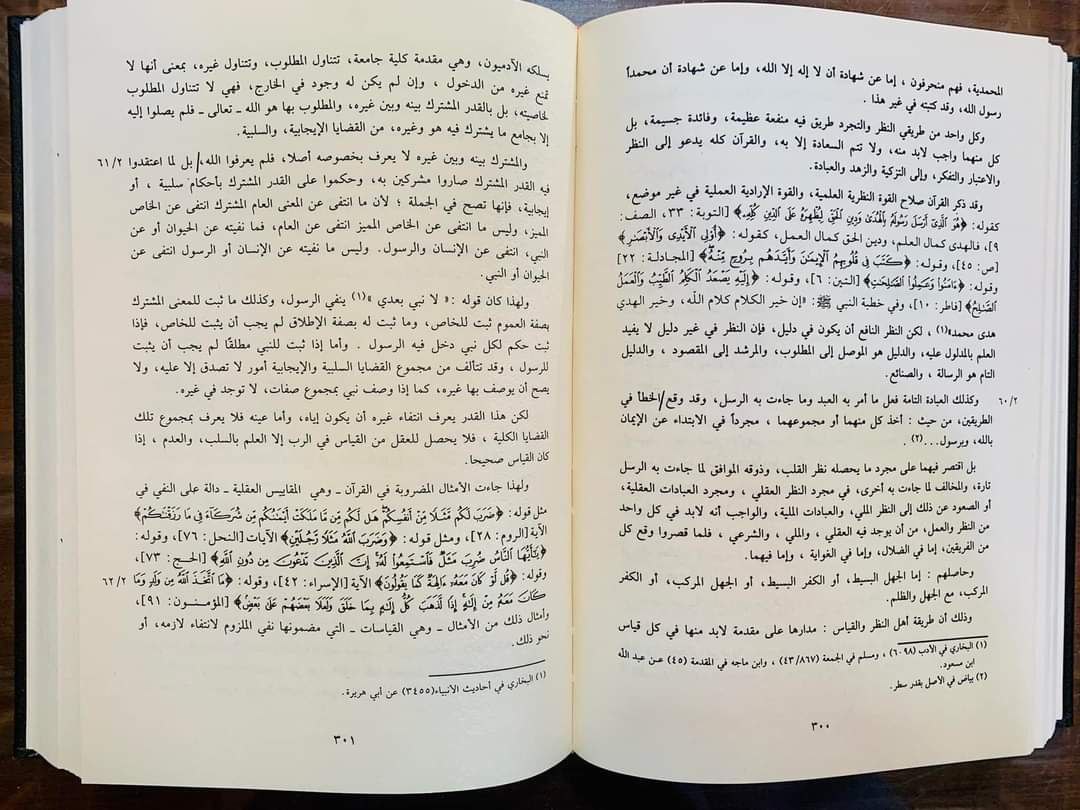 المحمدية، فهم منحرفون ، إما عن شهادة أن لا إله إلا الله، وإما عن شهادة أن محمداً
رسول الله، وقد كتبته في غير هذا .
وكل واحد من طريقي النظر والتجرد طريق فيه منفعة عظيمة، وفائدة جسيمة، بل
كل منهما واجب لابد منه، ولا تتم السعادة إلا به، والقرآن كله يدعو إلى النظر
والاعتبار والتفكر، وإلى التزكية والزهد والعبادة.
وقد ذكر القرآن صلاح القوة النظرية العلمية، والقوة الإرادية العملية في غير موضع،
كقوله: ﴿هُوَ الَّذِي أَرْسَلَ رَسُولَهُ بِالْهُدَى وَدِينِ الْحَقِّ لِيُظْهِرَهُ عَلَى الدِّينِ كُلِّهِ﴾ [التوبة: ٣٣، الصف:
٩]، فالهدى كمال العلم، ودين الحق كمال العمل، كقوله: ﴿أُوْلِي الْأَيْدِي وَالْأَبْصَارِ﴾
[ص: ٤٥]، وقوله: ﴿كَتَبَ فِي قُلُوبِهِمُ الْإِيمَانَ وَأَيَّدَهُم بِرُوحٍ مِّنْهُ﴾ [المجادلة: ٢٢]
وقوله: ﴿ءَامَنُوا وَعَمِلُوا الصَّالِحَاتِ﴾ [التين: ٦]، وقوله: ﴿إِلَيْهِ يَصْعَدُ الْكَلِمُ الطَّيِّبُ وَالْعَمَلُ
الصَّالِحُ﴾ [فاطر: ١٠]، وفي خطبة النبي ﷺ: «إن خير الكلام كلام الله، وخير الهدي
هدى محمد»(١) ، لكن النظر النافع أن يكون في دليل، فإن النظر في غير دليل لا يفيد
العلم بالمدلول عليه، والدليل هو الموصل إلى المطلوب، والمرشد إلى المقصود ، والدليل
التام هو الرسالة ، والصنائع.
وكذلك العبادة التامة فعل ما أمر به العبد وما جاءت به الرسل، وقد وقع/الخطأ في ٦٠/٢
الطريقين، من حيث : أخذ كل منهما أو مجموعهما ، مجرداً في الابتداء عن الإيمان
بالله، وبرسول...(٢) .
بل اقتصر فيهما على مجرد ما يحصله نظر القلب، وذوقه الموافق لما جاءت به الرسل
تارة، والمخالف لما جاءت به أخرى، في مجرد النظر العقلي ، ومجرد العبادات العقلية،
أو الصعود عن ذلك إلى النظر الملي، والعبادات الملية، والواجب أنه لابد في كل واحد
من النظر والعمل، من أن يوجد فيه العقلي ، والملي ، والشرعي ، فلما قصروا وقع كل
من الفريقين، إما في الضلال، وإما في الغواية ، وإما فيهما.
وحاصلهم : إما الجهل البسيط، أو الكفر البسيط، أو الجهل المركب، أو الكفر
المركب، مع الجهل والظلم.
وذلك أن طريقة أهل النظر والقياس : مدارها على مقدمة لابد منها في كل قياس
(١) البخاري في الأدب (٦٠٩٨) ، ومسلم في الجمعة (٤٣/٨٦٧) ، وابن ماجه في المقدمة (٤٥) عن عبد الله
ابن مسعود.
(٢) بياض في الأصل بقدر سطر.
٣٠٠
يسلكه الآدميون، وهي مقدمة كلية جامعة، تتناول المطلوب، وتتناول غيره، بمعنى أنها لا
تمنع غيره من الدخول ، وإن لم يكن له وجود في الخارج، فهي لا تتناول المطلوب
لخاصيته، بل بالقدر المشترك بينه وبين غيره، والمطلوب بها هو الله ـ تعالى ـ فلم يصلوا إليه
إلا بجامع ما يشترك فيه هو وغيره، من القضايا الإيجابية، والسلبية.
والمشترك بينه وبين غيره لا يعرف بخصوصه أصلا، فلم يعرفوا الله،/بل لما اعتقدوا ٦١/٢
فيه القدر المشترك صاروا مشركين به، وحكموا على القدر المشترك بأحكام سلبية ، أو
إيجابية، فإنها تصح في الجملة ؛ لأن ما انتفى عن المعنى العام المشترك انتفى عن الخاص
المميز، وليس ما انتفى عن الخاص المميز انتفى عن العام، فما نفيته عن الحيوان أو عن
النبي، انتفى عن الإنسان والرسول. وليس ما نفيته عن الإنسان أو الرسول انتفى عن
الحيوان أو النبي.
ولهذا كان قوله :« لا نبي بعدي »(١) ينفي الرسول، وكذلك ما ثبت للمعنى المشترك
بصفة العموم ثبت للخاص، وما ثبت له بصفة الإطلاق لم يجب أن يثبت للخاص، فإذا
ثبت حكم لكل نبي دخل فيه الرسول . وأما إذا ثبت للنبي مطلقًا لم يجب أن يثبت
للرسول ، وقد تتألف من مجموع القضايا السلبية والإيجابية أمور لا تصدق إلا عليه، ولا
يصح أن يوصف بها غيره، كما إذا وصف نبي بمجموع صفات، لا توجد في غيره.
لكن هذا القدر يعرف انتفاء غيره أن يكون إياه، وأما عينه فلا يعرف بمجموع تلك
القضايا الكلية ، فلا يحصل للعقل من القياس في الرب إلا العلم بالسلب، والعدم ، إذا
كان القياس صحيحا.
ولهذا جاءت الأمثال المضروبة في القرآن ـ وهي المقاييس العقلية ـ دالة على النفي في
مثل قوله: ﴿ضَرَبَ لَكُم مَّثَلًا مِّنْ أَنفُسِكُمْ هَل لَّكُم مِّن مَّا مَلَكَتْ أَيْمَانُكُم مِّن شُرَكَاءَ فِي مَا رَزَقْنَاكُمْ﴾
الآية[الروم: ٢٨]، ومثل قوله: ﴿وَضَرَبَ اللَّهُ مَثَلًا رَّجُلَيْنِ﴾ الآيات[النحل: ٧٦]، وقوله:
﴿يَا أَيُّهَا النَّاسُ ضُرِبَ مَثَلٌ فَاسْتَمِعُوا لَهُ إِنَّ الَّذِينَ تَدْعُونَ مِن دُونِ اللَّهِ﴾ [الحج: ٧٣]،
وقوله: ﴿قُل لَّوْ كَانَ مَعَهُ ءَالِهَةٌ كَمَا يَقُولُونَ﴾ الآية [الإسراء: ٤٢]، وقوله: ﴿مَا اتَّخَذَ اللَّهُ مِن وَلَدٍ وَمَا ٦٢/٢
كَانَ مَعَهُ مِنْ إِلَهٍ إِذًا لَّذَهَبَ كُلُّ إِلَهٍ بِمَا خَلَقَ وَلَعَلَا بَعْضُهُمْ عَلَى بَعْضٍ﴾ [المؤمنون: ٩١]،
وأمثال ذلك من الأمثال ـ وهي القياسات ـ التي مضمونها نفي الملزوم لانتفاء لازمه، أو
نحو ذلك.
(١) البخاري في أحاديث الأنبياء(٣٤٥٥) عن أبي هريرة.
٣٠١